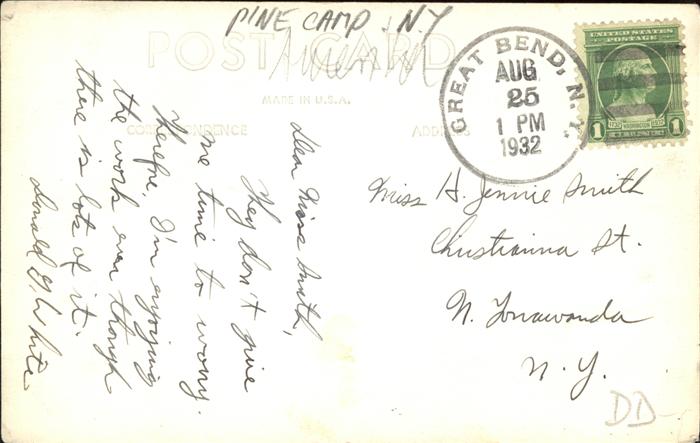 PINE CAMP, N.Y.
POST CARD
MADE IN U.S.A.
CORRESPONDENCE
ADDRESS
GREAT BEND, N.Y.
AUG
25
1 PM
1932
UNITED STATES
POSTAGE
1732 WASHINGTON 1932
1 1
Dear Miss Smith,
They don't give
me time to worry.
Therefore, I'm enjoying
the work even though
there is lots of it.
Donald G. White
Miss H. Jennie Smith
Christianna St.
N. Tonawanda
N.Y.
DD-